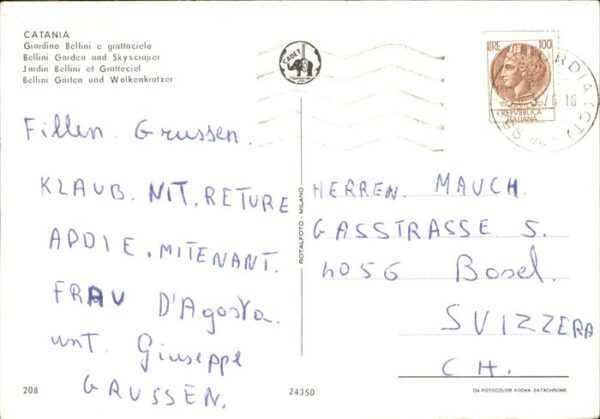 CATANIA
Giardino Bellini e grattacielo
Bellini Garden and Skyscraper
Jardin Bellini et Gratteciel
Bellini Garten und Wolkenkratzer
CADET
LIRE 100
REPVBBLICA
ITALIANA
Fillen. Grussen.
KLAUB. NIT. RETURE
APDIE. MITENANT.
FRAU D'Agosta.
unt. Giuseppe
GRUSSEN.
HERREN. MAUCH.
GASSTRASSE 5.
4056 Bosel.
SVIZZERA
CH.
ROTALFOTO - MILANO
208
24350
DA FOTOCOLOR KODAK EKTACHROME